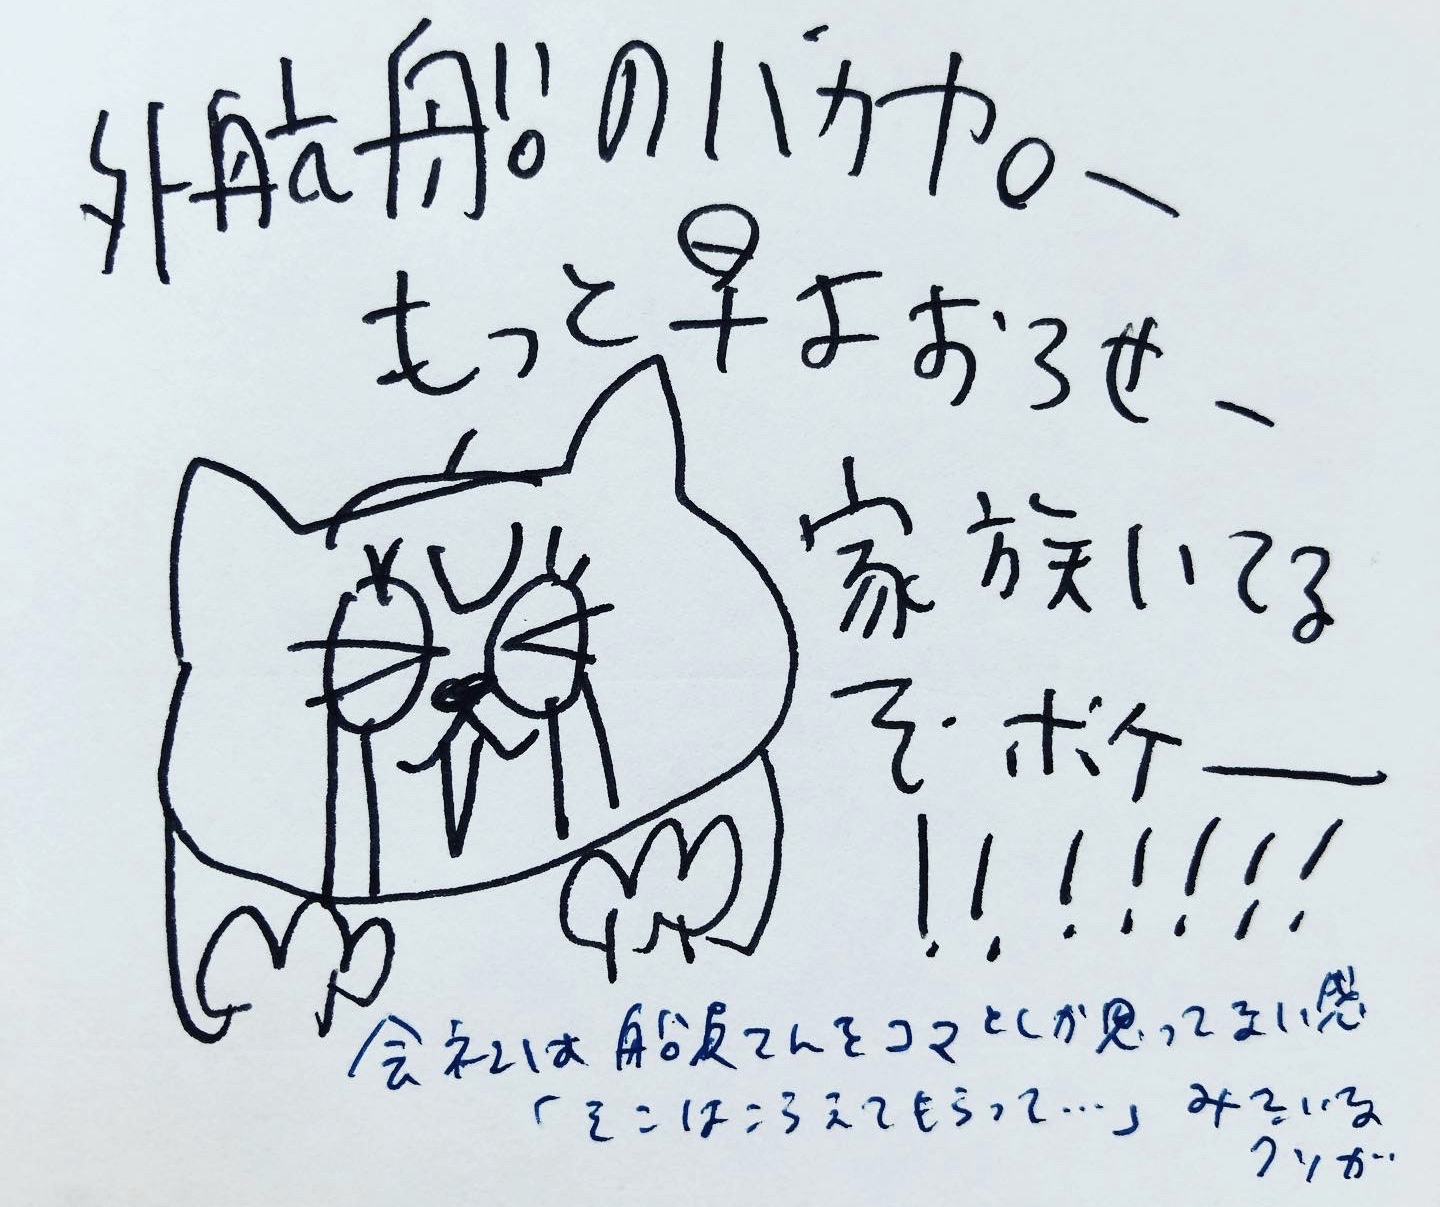 外航船のバカヤロー
もっと早よおろせー
家族いてる
ぞボケー
!!!!!!!
会社は船員さんをコマとしか思ってない感
「そこはこらえてもらって…」みたいな
クソが…